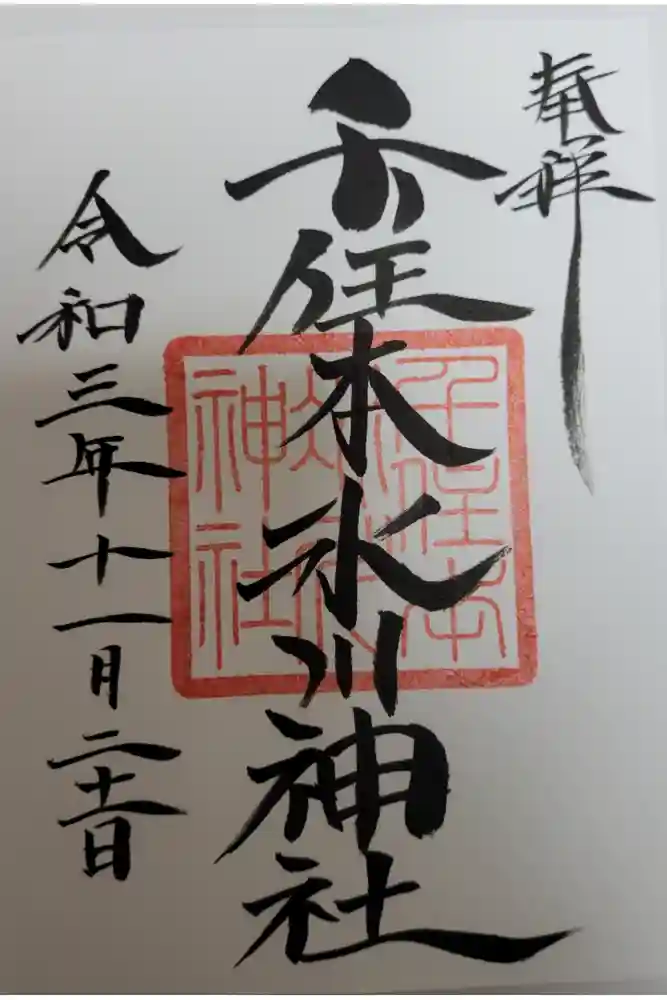 奉拝
千住本氷川神社
令和三年十一月二十一日
千住本
神社